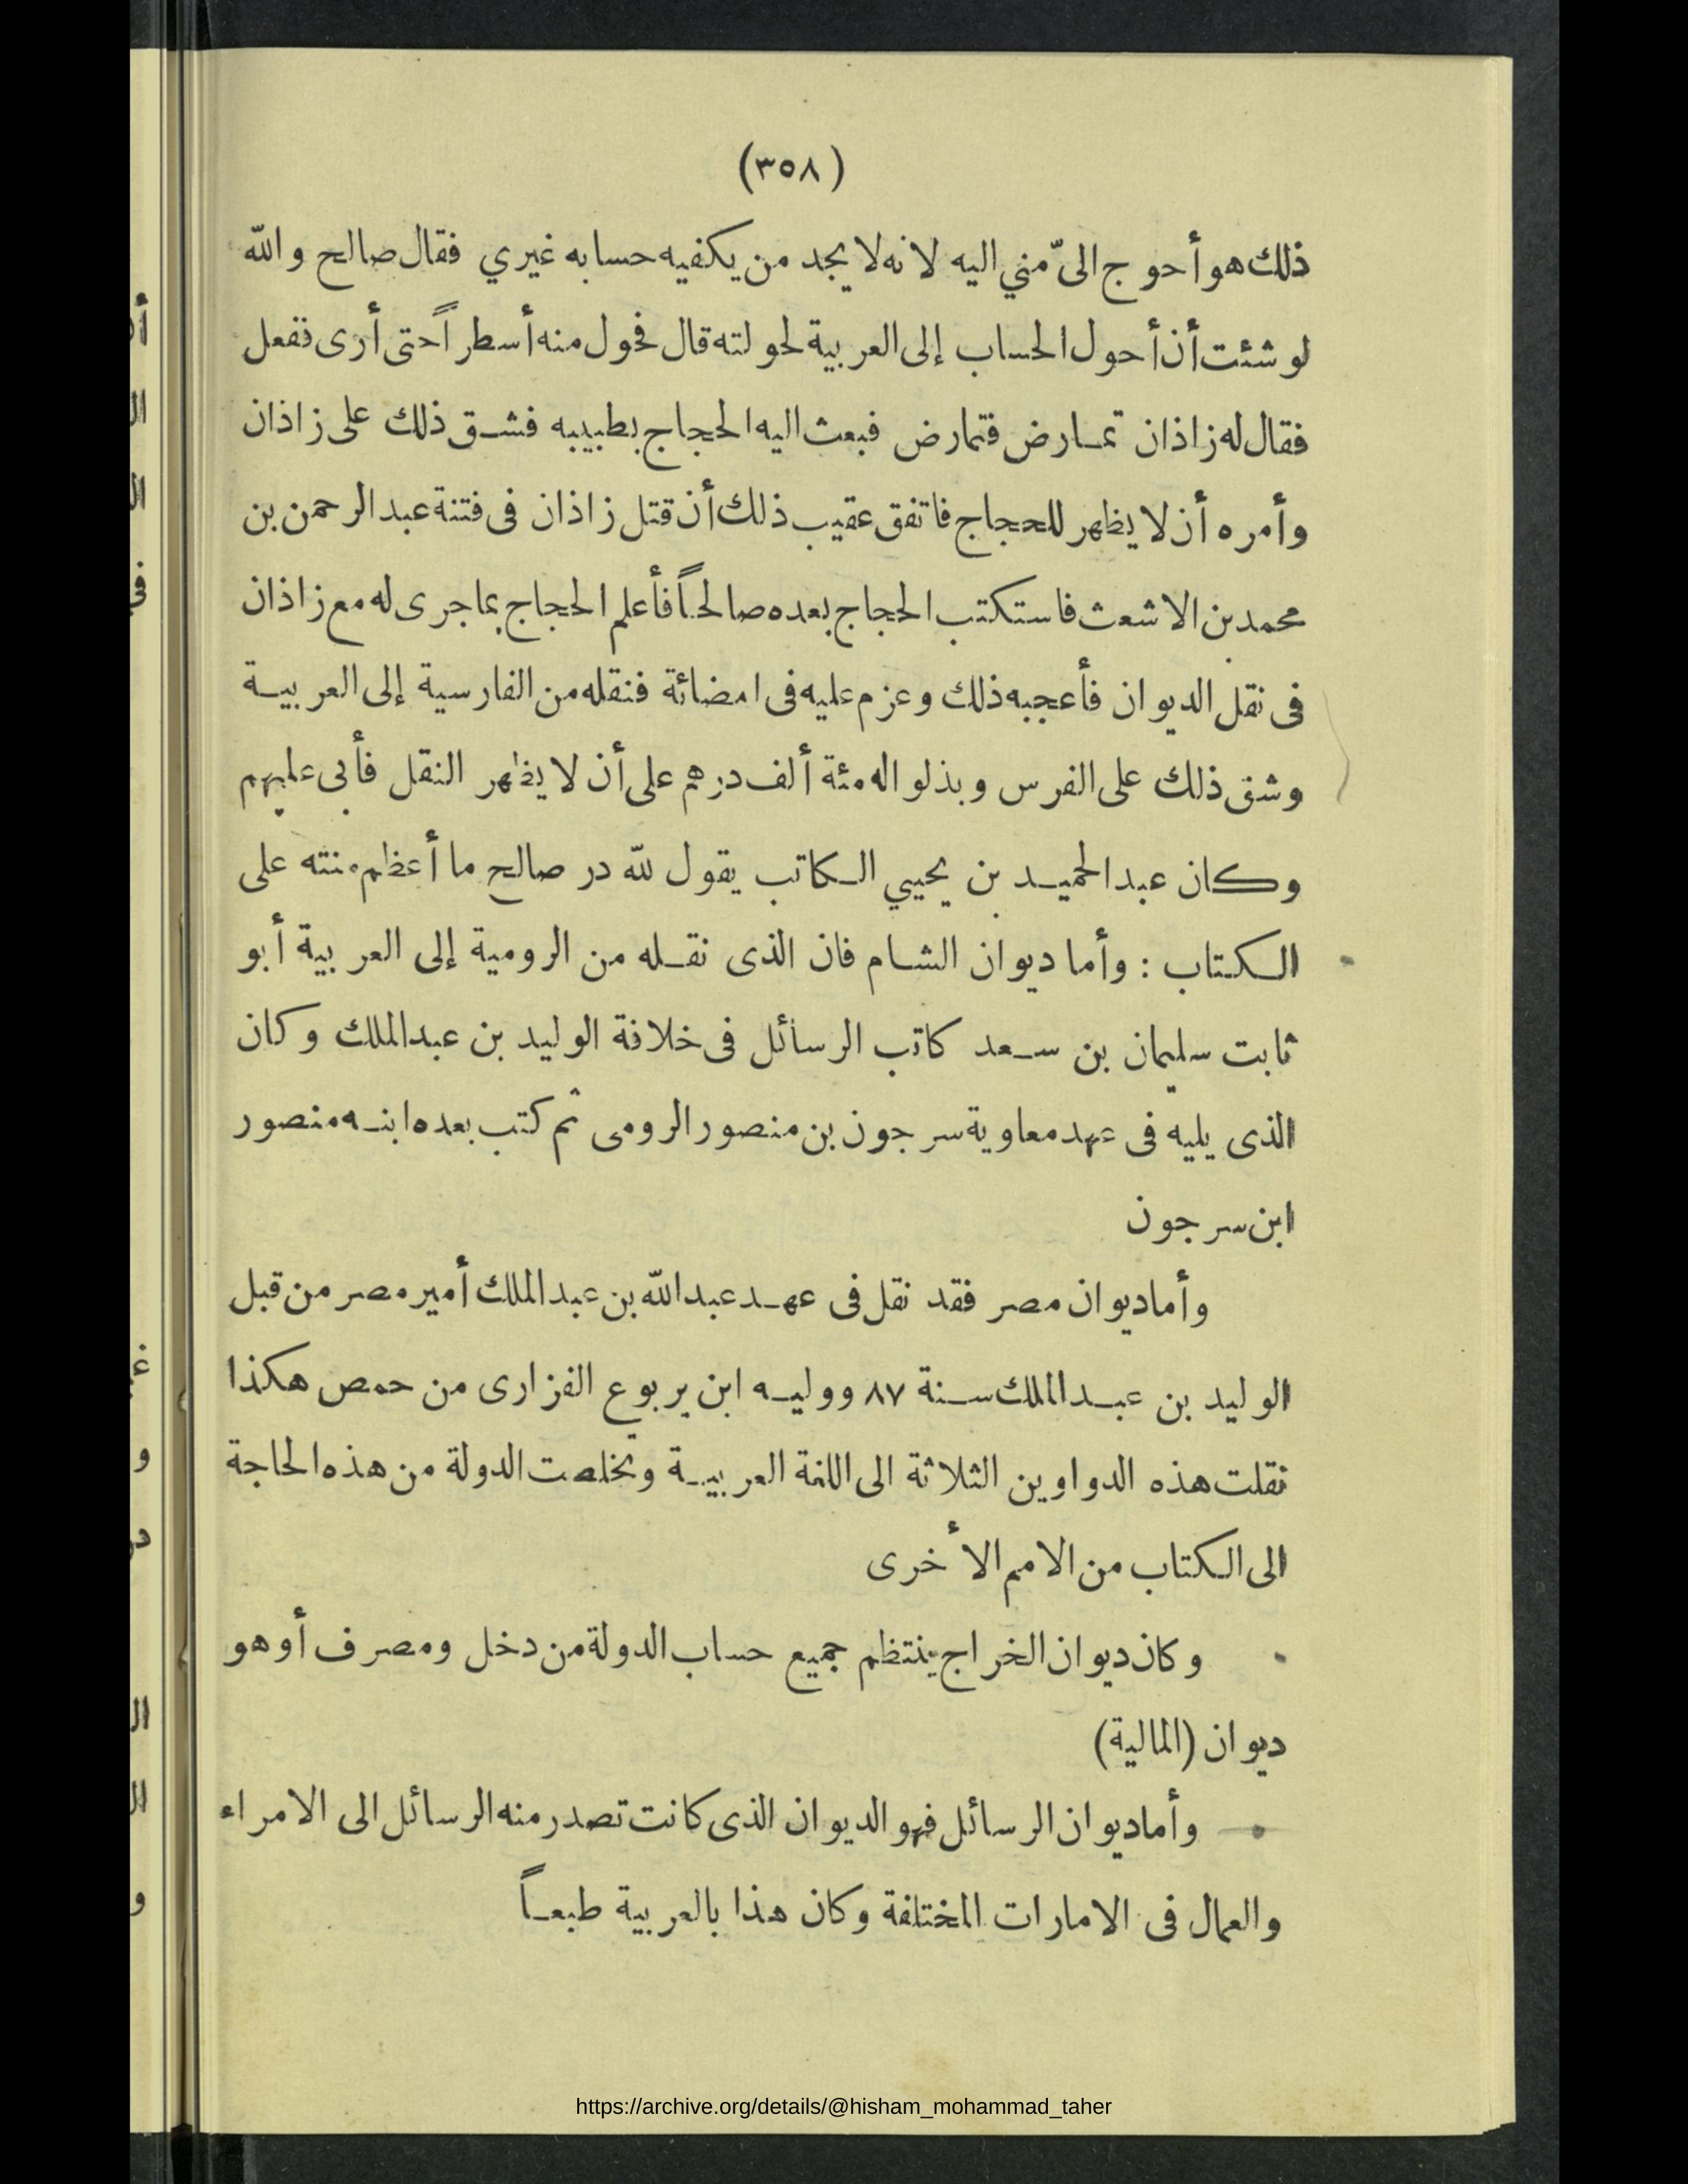 (٣٥٨)
ذلك هو أحوج الىّ مني اليه لانه لا يجد من يكفيه حسابه غيري فقال صالح والله
لو شئت أن أحول الحساب إلى العربية لحولته قال فحول منه أسطراً حتى أرى ففعل
فقال له زاذان تمارض فتمارض فبعث اليه الحجاج بطبيبه فشق ذلك على زاذان
وأمره أن لا يظهر للحجاج فاتفق عقيب ذلك أن قتل زاذان فى فتنة عبد الرحمن بن
محمد بن الاشعث فاستكتب الحجاج بعده صالحاً فأعلم الحجاج بما جرى له مع زاذان
فى نقل الديوان فأعجبه ذلك وعزم عليه فى امضائة فنقله من الفارسية إلى العربية
وشق ذلك على الفرس وبذلوا له مئة ألف درهم على أن لا يظهر النقل فأبى عليهم
وكان عبد الحميد بن يحيي الكاتب يقول لله در صالح ما أعظم منته على
الكتاب : وأما ديوان الشام فان الذى نقله من الرومية إلى العربية أبو
ثابت سليمان بن سعد كاتب الرسائل فى خلافة الوليد بن عبد الملك وكان
الذى يليه فى عهد معاوية سرجون بن منصور الرومى ثم كتب بعده ابنه منصور
ابن سرجون
وأما ديوان مصر فقد نقل فى عهد عبد الله بن عبد الملك أمير مصر من قبل
الوليد بن عبد الملك سنة ٨٧ ووليه ابن يربوع الفزارى من حمص هكذا
نقلت هذه الدواوين الثلاثة الى اللغة العربية وتخلصت الدولة من هذه الحاجة
الى الكتاب من الامم الأخرى
وكان ديوان الخراج ينتظم جميع حساب الدولة من دخل ومصرف أو هو
ديوان (المالية)
وأما ديوان الرسائل فهو الديوان الذى كانت تصدر منه الرسائل الى الامراء
والعمال فى الامارات المختلفة وكان هذا بالعربية طبعاً
https://archive.org/details/@hisham_mohammad_taher